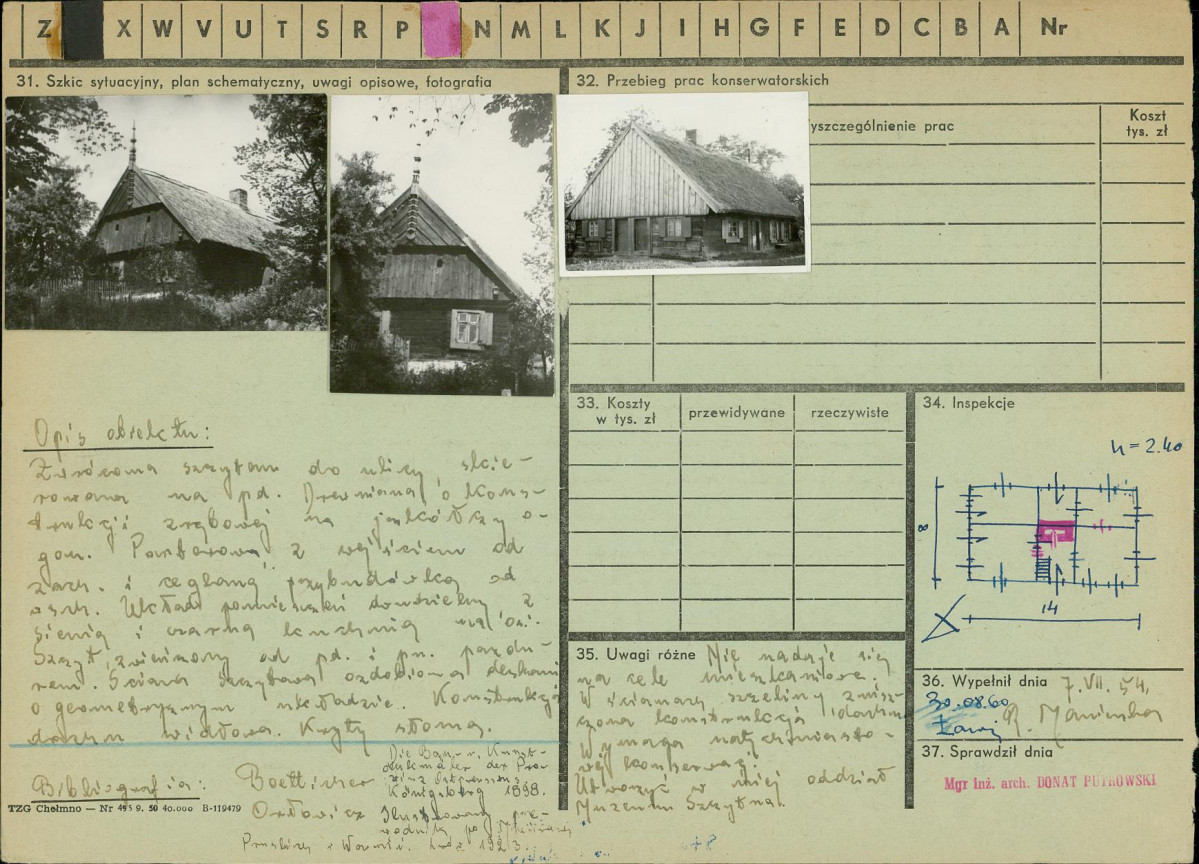 Z X W V U T S R P N M L K J I H G F E D C B A Nr
31. Szkic sytuacyjny, plan schematyczny, uwagi opisowe, fotografia
32. Przebieg prac konserwatorskich
yszczególnienie prac
Koszt
tys. zł
Opis obiektu:
Zwrócona szczytem do ulicy skie-
rowana na pd. Drewniana o kons-
trukcji zrębowej na jaskółczy o-
gon. Parterowa z wejściem od
zach. i ceglaną przybudówką od
wsch. Układ pomieszczeń dwudzielny, z
sienią i czarną kuchnią na osi.
Szczyt zwieńczony od pd. i pn. pazdu-
rem. Ściana szczytowa ozdobiona deskami
o geometrycznym układzie. Konstrukcja
dachu widłowa. Kryty słomą.
Bibliografia:
Boetticher Die Bau- u. Kunst-
denkmäler der Pro-
vinz Ostpreussen
Königsberg 1898.
Orłowicz Ilustrowany prze-
wodnik po Mazurach
Pruskich i Warmii. 1923.
TZG Chełmno — Nr 495 9. 50 40.000 B-119479
33. Koszty
w tys. zł
przewidywane
rzeczywiste
34. Inspekcje
h = 2.40
8
14
35. Uwagi różne Nie nadaje się
na cele mieszkaniowe.
W ścianach szczeliny znisz-
czona konstrukcja dachu
Wymaga natychmiasto-
wej konserwacji.
Utworzyć w niej oddział
Muzeum Szczytna.
36. Wypełnił dnia 7. VII. 54,
30.08.60 R. Mańkowska
37. Sprawdził dnia
Mgr inż. arch. DONAT PUTKOWSKI